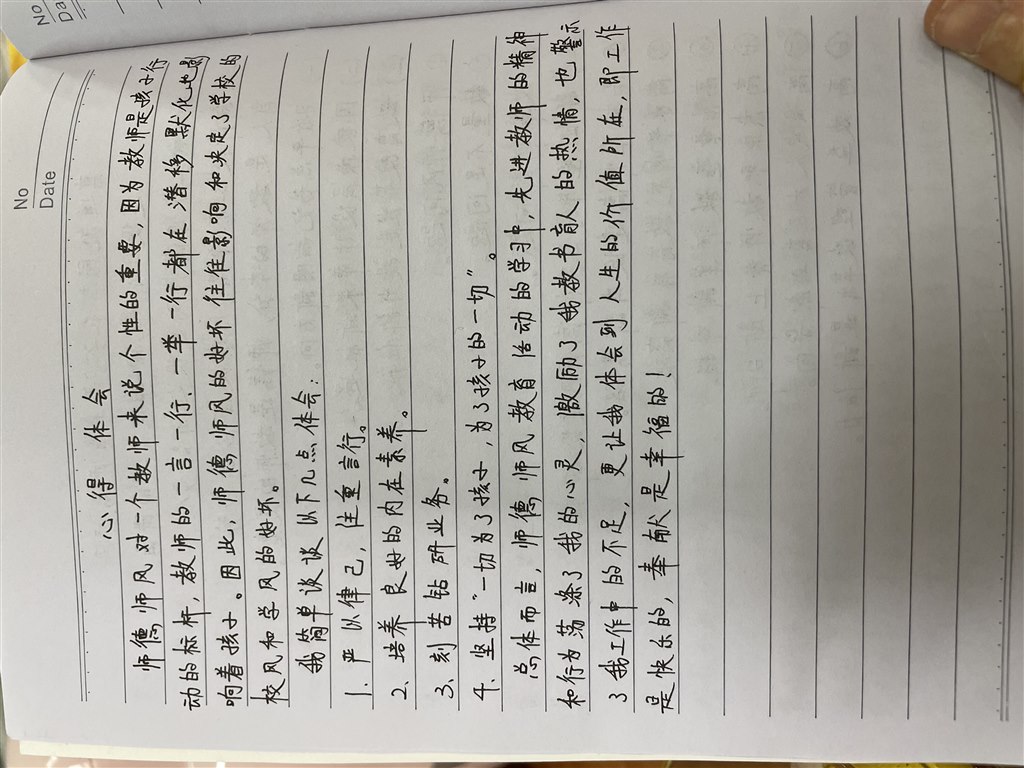 No
Da
No
Date
心得 体会
师德师风对一个教师来说个性的重要,因为教师是孩子行
动的标杆,教师的一言一行、一举一行都在潜移默化地影
响着孩子。因此,师德师风的好坏往往影响和决定了学校的
校风和学风的好坏。
我简单谈谈以下几点体会:
1、严以律己,注重言行。
2、培养良好的内在素养。
3、刻苦钻研业务。
4、坚持“一切为了孩子,为了孩子的一切”。
总体而言,师德师风教育活动的学习中,先进教师的精神
和行为荡涤了我的心灵,激励了我教书育人的热情,也警示
了我工作中的不足,更让我体会到人生的价值所在,即工作
是快乐的,奉献是幸福的!